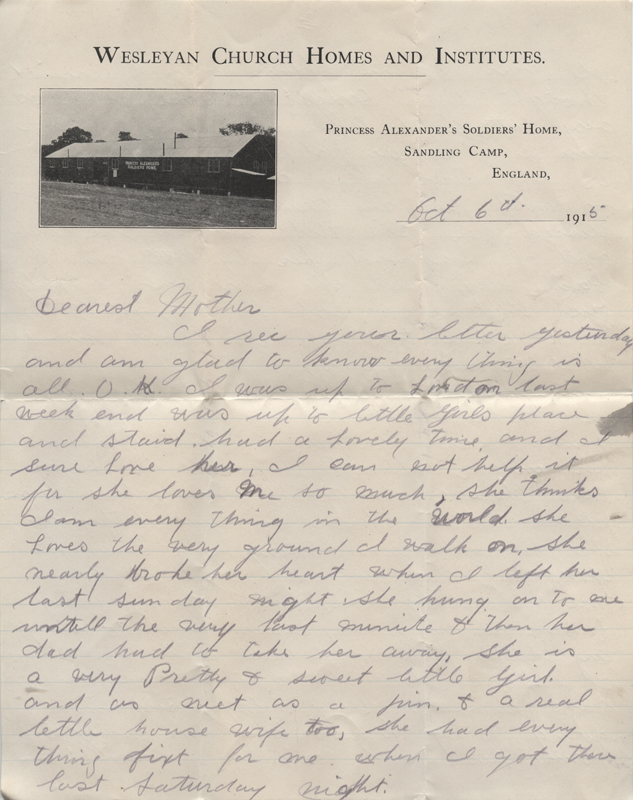 WESLEYAN CHURCH HOMES AND INSTITUTES.
PRINCESS ALEXANDER'S SOLDIERS' HOME,
SANDLING CAMP,
ENGLAND,
Oct 6th 1915
Dearest Mother
I rec your letter yesturday
and am glad to know every thing is
all O.K. I was up to London last
week end was up to little Girls place
and staid. had a Lovely time and I
sure Love her, I can not help it
for she loves me so much, she thinks
I am every thing in the world she
Loves the very ground I walk on, she
nearly broke her heart when I left her
last sunday night she hung on to me
untill the very last minite & then her
dad had to take her away, she is
a very Pretty & sweet little Girl
and as neet as a pin, & a real
little house wife too, she had every
thing fixt for me when I got there
last Saturday night.